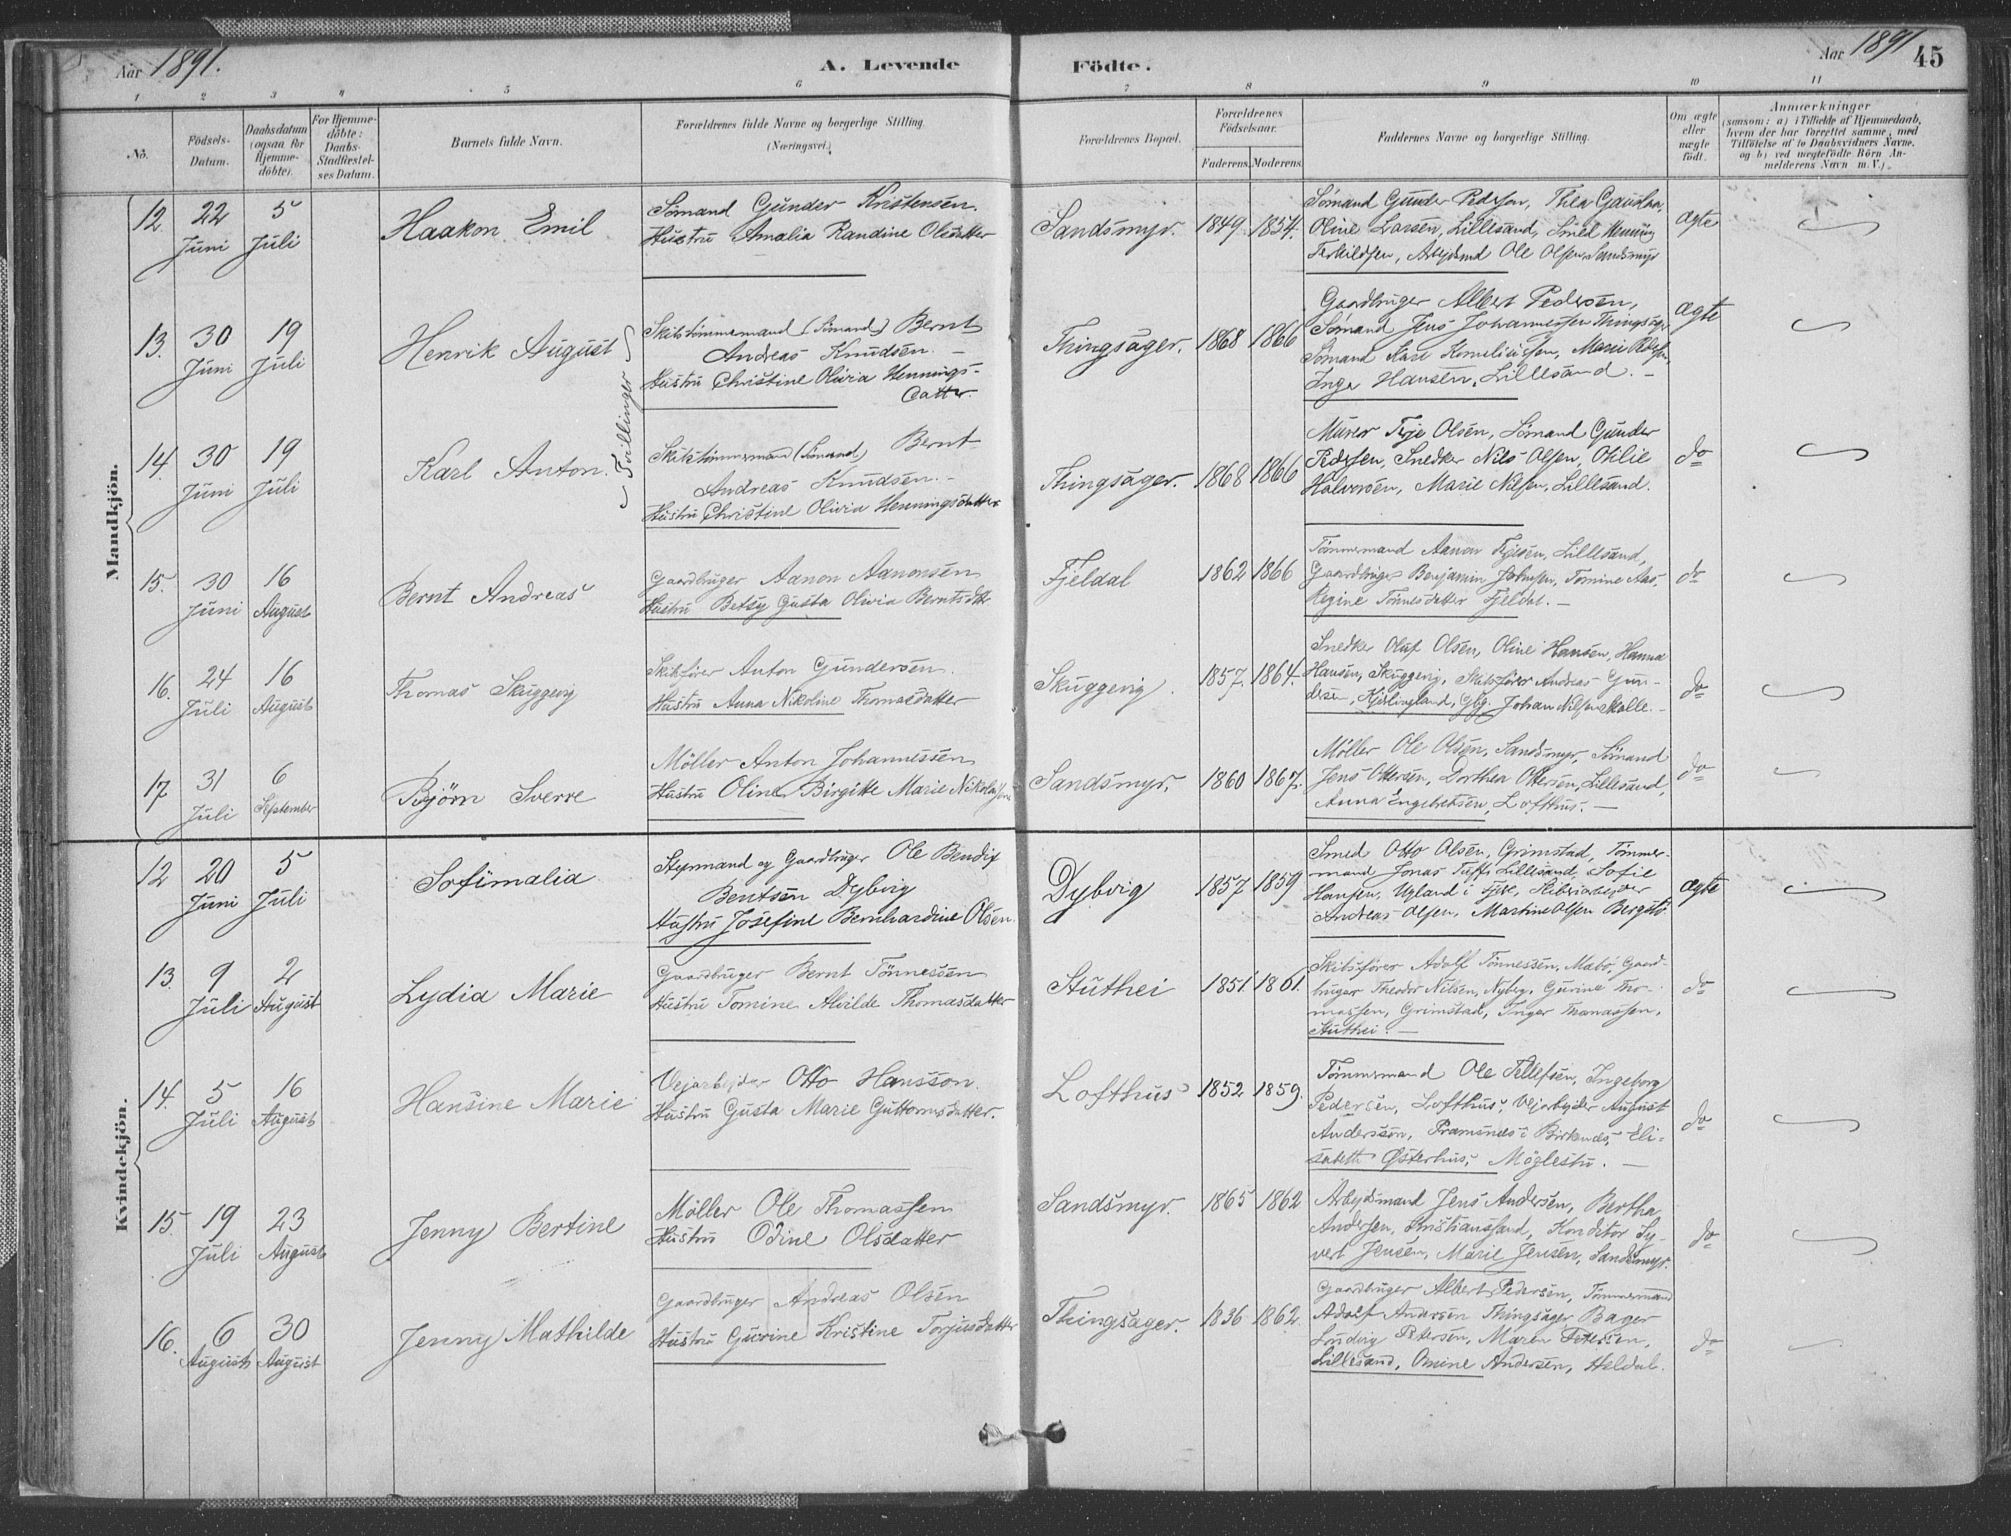 Aar 1891.
A. Levende Födte.
Aar 1891
45
1 2 3 4 5 6 7 8 9 10 11
No.
Födsels-Datum.
Daabsdatum (ogsaa for Hjemme-döbte).
For Hjemme-döbte: Daabs-Stadfæstel-ses Datum.
Barnets fulde Navn.
Forældrenes fulde Navne og borgerlige Stilling (Næringsvei.)
Forældrenes Bopæl.
Forældrenes Födselsaar.
Faderens. Moderens.
Faddernes Navne og borgerlige Stilling.
Om ægte eller uægte födt.
Anmærkninger
(saasom: a) i Tilfælde af Hjemmedaab, hvem der har forrettet samme, med Tilföielse af to Daabsvidners Navne, og b) ved uægtefödte Börn Anmelderens Navn m. V.).
Mandkjön.
12 22 Juni 5 Juli
Haakon Emil
Sømand Gunder Kristensen.
Hustru Amalia Randine Olesdatter
Sandsmyr. 1849. 1854.
Sømand Gunder Pedersen, Thea
Oline Larsen, Lillesand, Smed Henning
Terkildsen, Arbejdsmd Ole Olsen Sandsmyr
ægte
13. 30 Juni 19 Juli
Henrik August
Tvillinger
Skibstømmermand (Sømand) Bernt
Andreas Knudsen. –
Hustru Christine Olivia Hennings-
datter.
Thingsager. 1868 1866
Gaardbruger Albert Pedersen,
Sømand Jens Johannessen Thingsager
Sømand Karl Korneliussen, Marie Pedersen,
Inga Hansen, Lillesand. –
ægte
14. 30 Juni 19 Juli
Karl Anton.
Skibstømmermand (Sømand) Bernt
Andreas Knudsen. –
Hustru Christine Olivia Henningsdatter
Thingsager. 1868 1866
Murer Terje Olsen, Sømand Gunder
Pedersen, Snedker Nils Olsen, Otilie
Halvorsen, Marie Nilsen, Lillesand.
do
15. 30 Juni 16 August
Bernt Andreas
Gaardbruger Aanon Aanonsen
Hustru Betsy Gusta Olivia Berntsdtr
Fjeldal 1862 1866
Tømmermand Aanon Terjesen, Lillesand,
Gaardbruger Benjamin Johnsen, Tomine Aas,
Regine Tønnesdatter Fjeldal. –
do
16. 24 Juli 16 August
Thomas Skuggevig
Skibsfører Anton Gundersen
Hustru Anna Nikoline Thomasdatter
Skuggevig. 1857. 1864.
Snedker Oluf Olsen, Oline Hansen, Hanna
Hansen, Skuggevig, Skibsfører Andreas Gun-
dersen, Kjislingland, Gbg. Johan Nilsen Skalle. –
do
17 31 Juli 6 September
Bjørn Sverre
Møller Anton Johannessen
Hustru Oline Birgitte Marie Nikolaisen
Sandsmyr. 1860 1867.
Møller Ole Olsen, Sandsmyr, Sømand
Jens Ottersen, Dorthea Ottersen, Lillesand,
Anna Engebretsen, Lofthus. –
do
Kvindekjön.
12 20 Juni 5 Juli
Sofimalia
Styrmand og Gaardbruger Ole Bendix
Bentsen Dybvig
Hustru Josefine Bernhardine Olsen.
Dybvig 1857 1859
Smed Otto Olsen, Grimstad, Tømmer-
mand Jonas Lillesand, Sofie
Hansen, Ugland i
Andreas Olsen, Martine Olsen
ægte
13. 9 Juli 2 August
Lydia Marie
Gaardbruger Bernt Tønnessen
Hustru Tomine Alvilde Thomasdatter
Stuthei 1851. 1861.
Skibsfører Adolf Tønnessen, Mabø, Gaard-
bruger Theodor Nilsen, Nyberg, Gurine Tho-
massen, Grimstad, Inger Thomassen,
Stuthei. –
do
14. 5 Juli 16 August
Hansine Marie
Vejarbejder Otto Hansson.
Hustru Gusta Marie Guttormsdatter.
Lofthus 1852 1859.
Tømmermand Ole Tellefsen, Ingeborg
Pedersen, Lofthus, Vejarbejder August
Anderssøn, i Birkenes, Eli-
sabeth Østerhus, Møglestu. –
do
15. 19 Juli 23 August
Jenny Bertine
Møller Ole Thomassen
Hustru Odine Olsdatter
Sandsmyr. 1865 1862
Arbejdsmand Jens Andersen, Bertha
Andersen, Kristianssand, Konditor Sy-
vert Jensen, Marie Jensen, Sandsmyr.
do
16. 6 August 30 August
Jenny Mathilde
Gaardbruger Andreas Olsen
Hustru Gurine Kristine Torjusdatter
Thingsager. 1836 1862.
Gaardbruger Albert Pedersen, Tømmermand
Adolf Andersen Thingsager Bager
Ludvig Petersen, Maren Petersen,
Lillesand, Omine Andersen, Heldal.
do